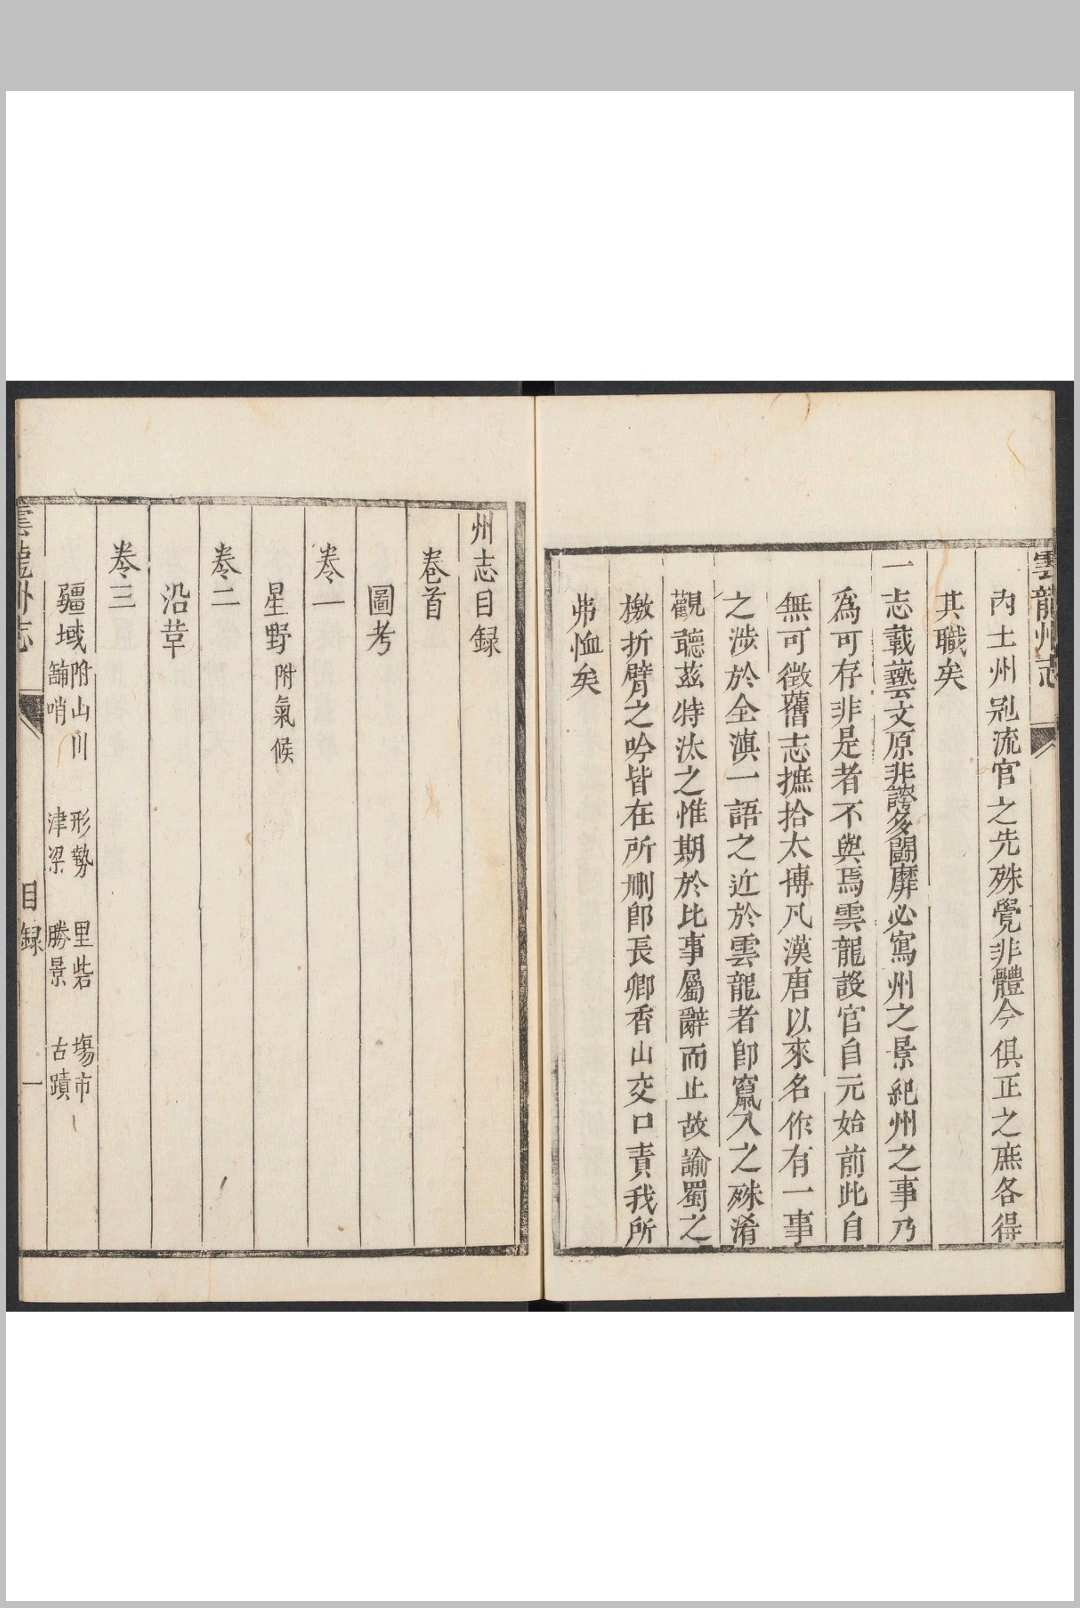 雲龍州志
內土州別流官之先殊覺非體今俱正之庶各得
其職矣
一志載藝文原非誇多鬭靡必寫州之景紀州之事乃
爲可存非是者不與焉雲龍設官自元始前此自
無可徵舊志摭拾太博凡漢唐以來名作有一事
之涉於全滇一語之近於雲龍者卽竄入之殊淆
觀聽茲特汰之惟期於比事屬辭而止故諭蜀之
檄折臂之吟皆在所刪卽長卿香山交口責我所
弗恤矣
州志目録
卷首
圖考
卷一
星野 附氣候
卷二
沿革
卷三
疆域 附山川 形勢 里砦 塲市
舖哨 津梁 勝景 古蹟
雲龍州志 目録 一